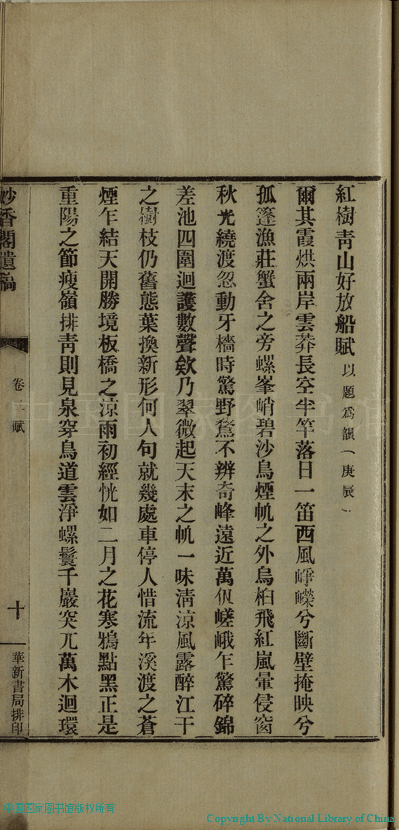 紅樹青山好放船賦以題為韻(庚辰)
爾其霞烘兩岸雲莽長空半竿落日一笛西風崢嶸兮斷壁掩映兮
孤篷漁莊蟹舍之旁螺峯峭碧沙鳥煙帆之外烏桕飛紅嵐暈侵窗
秋光繞渡忽動牙檣時驚野鶩不辨奇峰遠近萬仭嵯峨乍驚碎錦
差池四圍迴護數聲欸乃翠微起天末之帆一味淸涼風露醉江干
之樹枝仍舊態葉換新形何人句就幾處車停人惜流年溪渡之蒼
煙乍結天開勝境板橋之涼雨初經恍如二月之花寒鴉點黑正是
重陽之節瘦嶺排青則見泉穿鳥道雲淨螺鬟千巖突兀萬木迴環
妙香閣遺稿
卷二 賦
十
華新書局排印
中国国家图书馆版权所有
Copyright By National Library of China